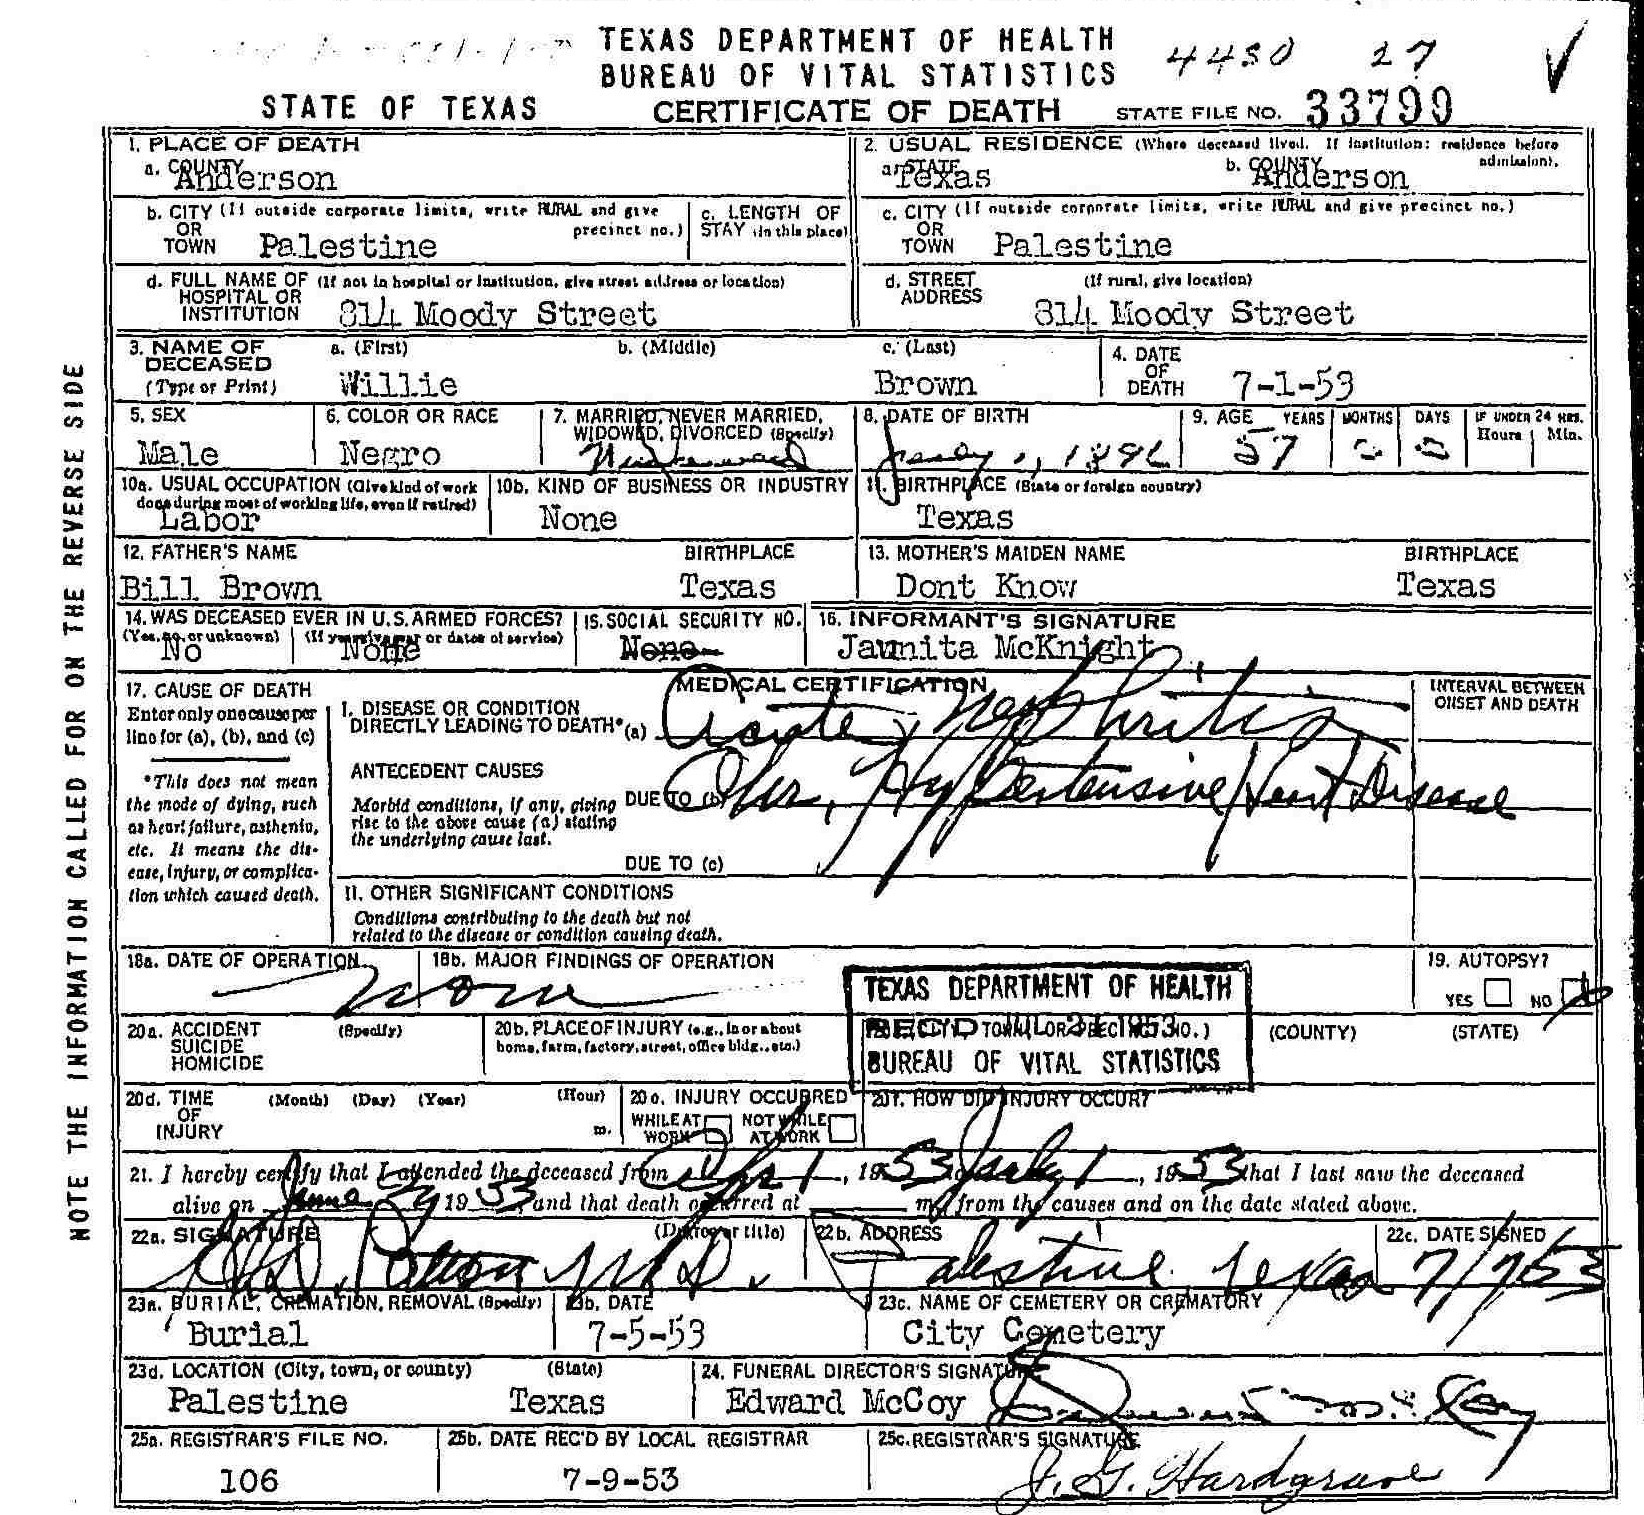 TEXAS DEPARTMENT OF HEALTH
BUREAU OF VITAL STATISTICS
4480 27
STATE OF TEXAS CERTIFICATE OF DEATH STATE FILE NO. 33799
NOTE THE INFORMATION CALLED FOR ON THE REVERSE SIDE
1. PLACE OF DEATH
a. COUNTY
Anderson
2. USUAL RESIDENCE (Where deceased lived. If institution: residence before admission).
a. STATE
Texas
b. COUNTY
Anderson
b. CITY (If outside corporate limits, write RURAL and give precinct no.)
OR
TOWN Palestine
c. LENGTH OF
STAY (in this place)
c. CITY (If outside corporate limits, write RURAL and give precinct no.)
OR
TOWN Palestine
d. FULL NAME OF (If not in hospital or institution, give street address or location)
HOSPITAL OR
INSTITUTION 814 Moody Street
d. STREET (If rural, give location)
ADDRESS 814 Moody Street
3. NAME OF a. (First) b. (Middle) c. (Last)
DECEASED
(Type or Print) Willie Brown
4. DATE
OF
DEATH 7-1-53
5. SEX
Male
6. COLOR OR RACE
Negro
7. MARRIED, NEVER MARRIED,
WIDOWED, DIVORCED (Specify)
8. DATE OF BIRTH
9. AGE YEARS MONTHS DAYS IF UNDER 24 HRS.
Hours Min.
57
10a. USUAL OCCUPATION (Give kind of work
done during most of working life, even if retired)
Labor
10b. KIND OF BUSINESS OR INDUSTRY
None
11. BIRTHPLACE (State or foreign country)
Texas
12. FATHER'S NAME BIRTHPLACE
Bill Brown Texas
13. MOTHER'S MAIDEN NAME BIRTHPLACE
Dont Know Texas
14. WAS DECEASED EVER IN U.S. ARMED FORCES?
(Yes, no, or unknown) (If yes, give war or dates of service)
No None
15. SOCIAL SECURITY NO.
None
16. INFORMANT'S SIGNATURE
Jaunita McKnight
17. CAUSE OF DEATH
Enter only one cause per
line for (a), (b), and (c)
*This does not mean
the mode of dying, such
as heart failure, asthenia,
etc. It means the dis-
ease, injury, or complica-
tion which caused death.
MEDICAL CERTIFICATION
INTERVAL BETWEEN
ONSET AND DEATH
I. DISEASE OR CONDITION
DIRECTLY LEADING TO DEATH* (a) Acute Nephritis
ANTECEDENT CAUSES
Morbid conditions, if any, giving
rise to the above cause (a) stating
the underlying cause last.
DUE TO (b) Chr. Hypertensive Heart Disease
DUE TO (c)
II. OTHER SIGNIFICANT CONDITIONS
Conditions contributing to the death but not
related to the disease or condition causing death.
18a. DATE OF OPERATION
None
18b. MAJOR FINDINGS OF OPERATION
19. AUTOPSY?
YES NO
TEXAS DEPARTMENT OF HEALTH
REC'D JUL 21 1953
BUREAU OF VITAL STATISTICS
20a. ACCIDENT (Specify)
SUICIDE
HOMICIDE
20b. PLACE OF INJURY (e.g., in or about
home, farm, factory, street, office bldg., etc.)
(COUNTY) (STATE)
20d. TIME (Month) (Day) (Year) (Hour)
OF
INJURY m.
20e. INJURY OCCURRED
WHILE AT WORK NOT WHILE AT WORK
20f. HOW DID INJURY OCCUR?
21. I hereby certify that I attended the deceased from Apr 1, 1953 to July 1, 1953 that I last saw the deceased
alive on June 1953, and that death occurred at m., from the causes and on the date stated above.
22a. SIGNATURE (Degree or title)
Patton MD.
22b. ADDRESS
Palestine, Texas
22c. DATE SIGNED
7/7/53
23a. BURIAL, CREMATION, REMOVAL (Specify)
Burial
23b. DATE
7-5-53
23c. NAME OF CEMETERY OR CREMATORY
City Cemetery
23d. LOCATION (City, town, or county) (State)
Palestine Texas
24. FUNERAL DIRECTOR'S SIGNATURE
Edward McCoy
25a. REGISTRAR'S FILE NO.
106
25b. DATE REC'D BY LOCAL REGISTRAR
7-9-53
25c. REGISTRAR'S SIGNATURE
J. G. Hardgrave